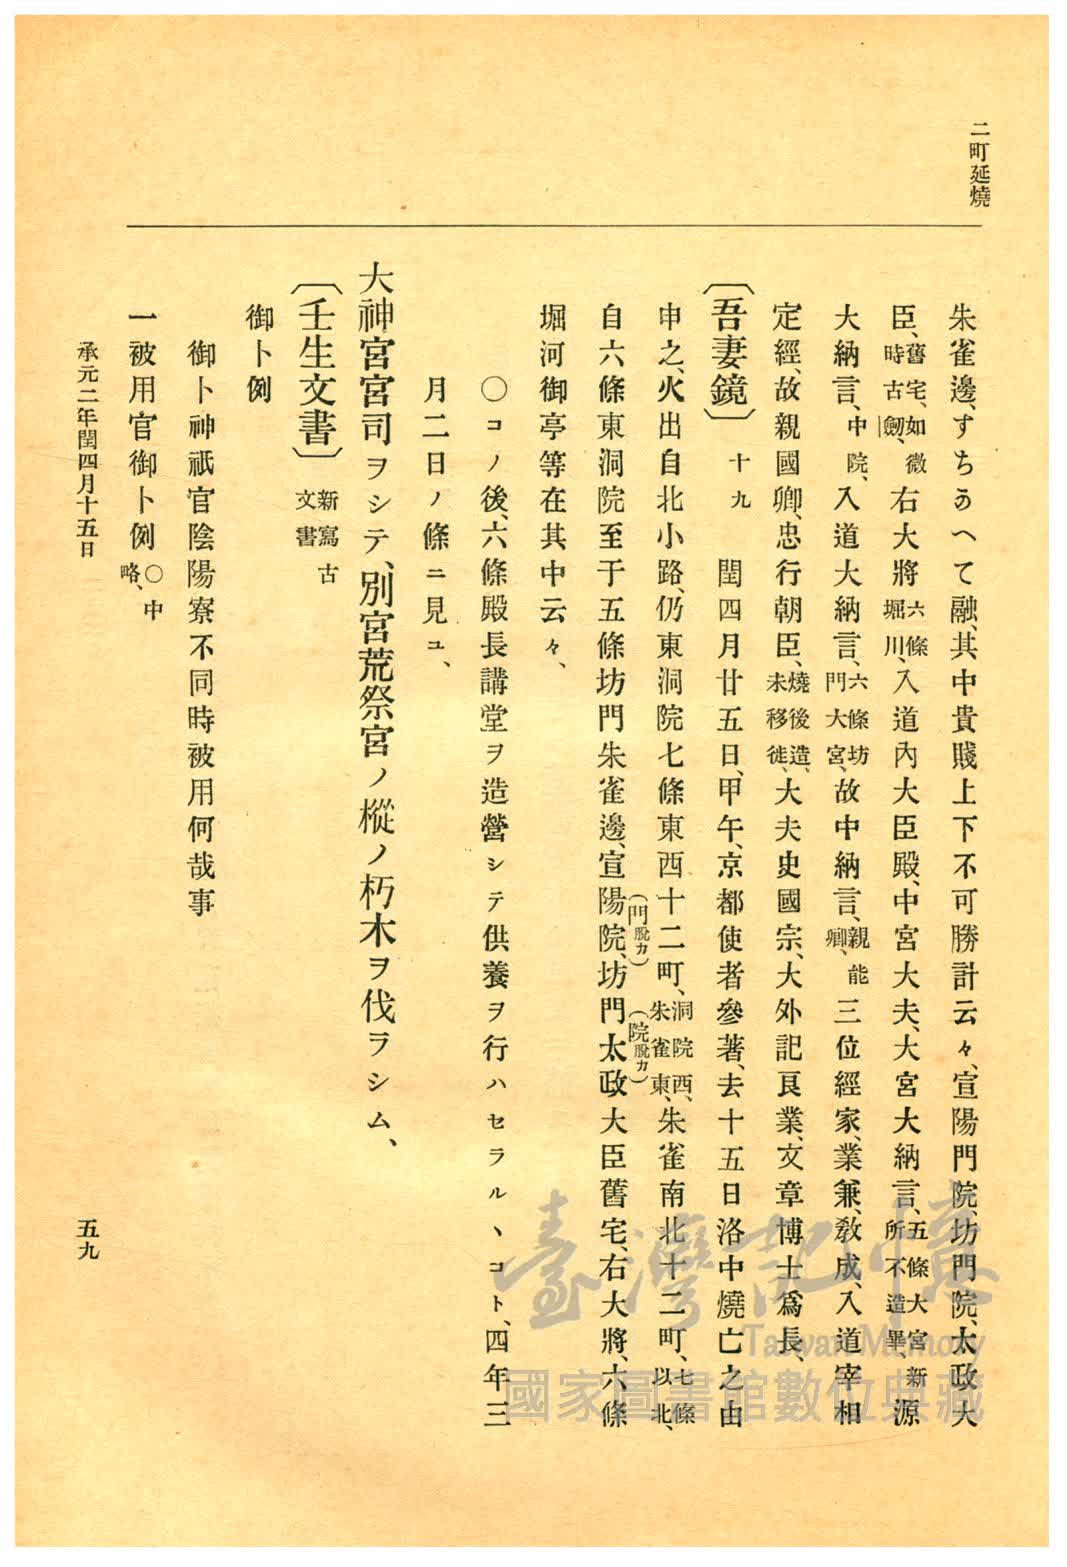 二町延燒
朱雀邊、すちゐへて融、其中貴賤上下不可勝計云々、宣陽門院、坊門院、太政大
臣、舊宅、如微時古劒、右大將六條堀川、入道內大臣殿、中宮大夫、大宮大納言、五條大宮新所不造畢、源
大納言、中院、入道大納言、六條坊門大宮、故中納言、親能卿、三位經家、業兼、敎成、入道宰相
定經、故親國卿、忠行朝臣、燒後造、未移徙、大夫史國宗、大外記良業、文章博士爲長、
〔吾妻鏡〕十九 閏四月廿五日、甲午、京都使者參著、去十五日洛中燒亡之由
申之、火出自北小路、仍東洞院七條東西十二町、洞院西、朱雀東、朱雀南北十二町、七條以北、
自六條東洞院至于五條坊門朱雀邊、宣陽(門脫カ)院、坊門(院脫カ)太政大臣舊宅、右大將、六條
堀河御亭等在其中云々、
〇コノ後、六條殿長講堂ヲ造營シテ供養ヲ行ハセラルヽコト、四年三
月二日ノ條ニ見ユ、
大神宮宮司ヲシテ、別宮荒祭宮ノ樅ノ朽木ヲ伐ラシム、
〔壬生文書〕新寫古文書
御卜例
御卜神祇官陰陽寮不同時被用何哉事
一被用官御卜例〇中略、
承元二年閏四月十五日
五九
臺灣記憶
Taiwan Memory
國家圖書館數位典藏